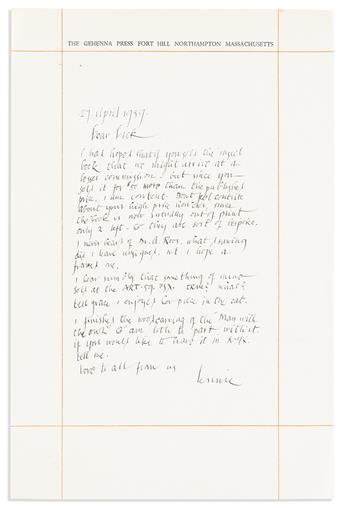 THE GEHENNA PRESS FORT HILL NORTHAMPTON MASSACHUSETTS
27. April 1959.
Dear Dick
I had hoped that if you sold the insect
book that we might arrive at a
lesser commission. but since you
sold it for $50 more than the published
price. I am content. Don't feel contrite
about your high price however, since
the book is now virtually out-of-print
only 2 left. & they are sort of
I never heard of Dr. A. Ross. what drawing
did I leave unsigned. not I hope a
framed one.
I hear that something of mine
sold at the ART-
Tell Grace I enjoyed her piece in the cat.
I finished the woodcarving of the Man with
the owl. & am loth to part with it
if you would like to have it in
tell me.
Love to all from us
Lennie